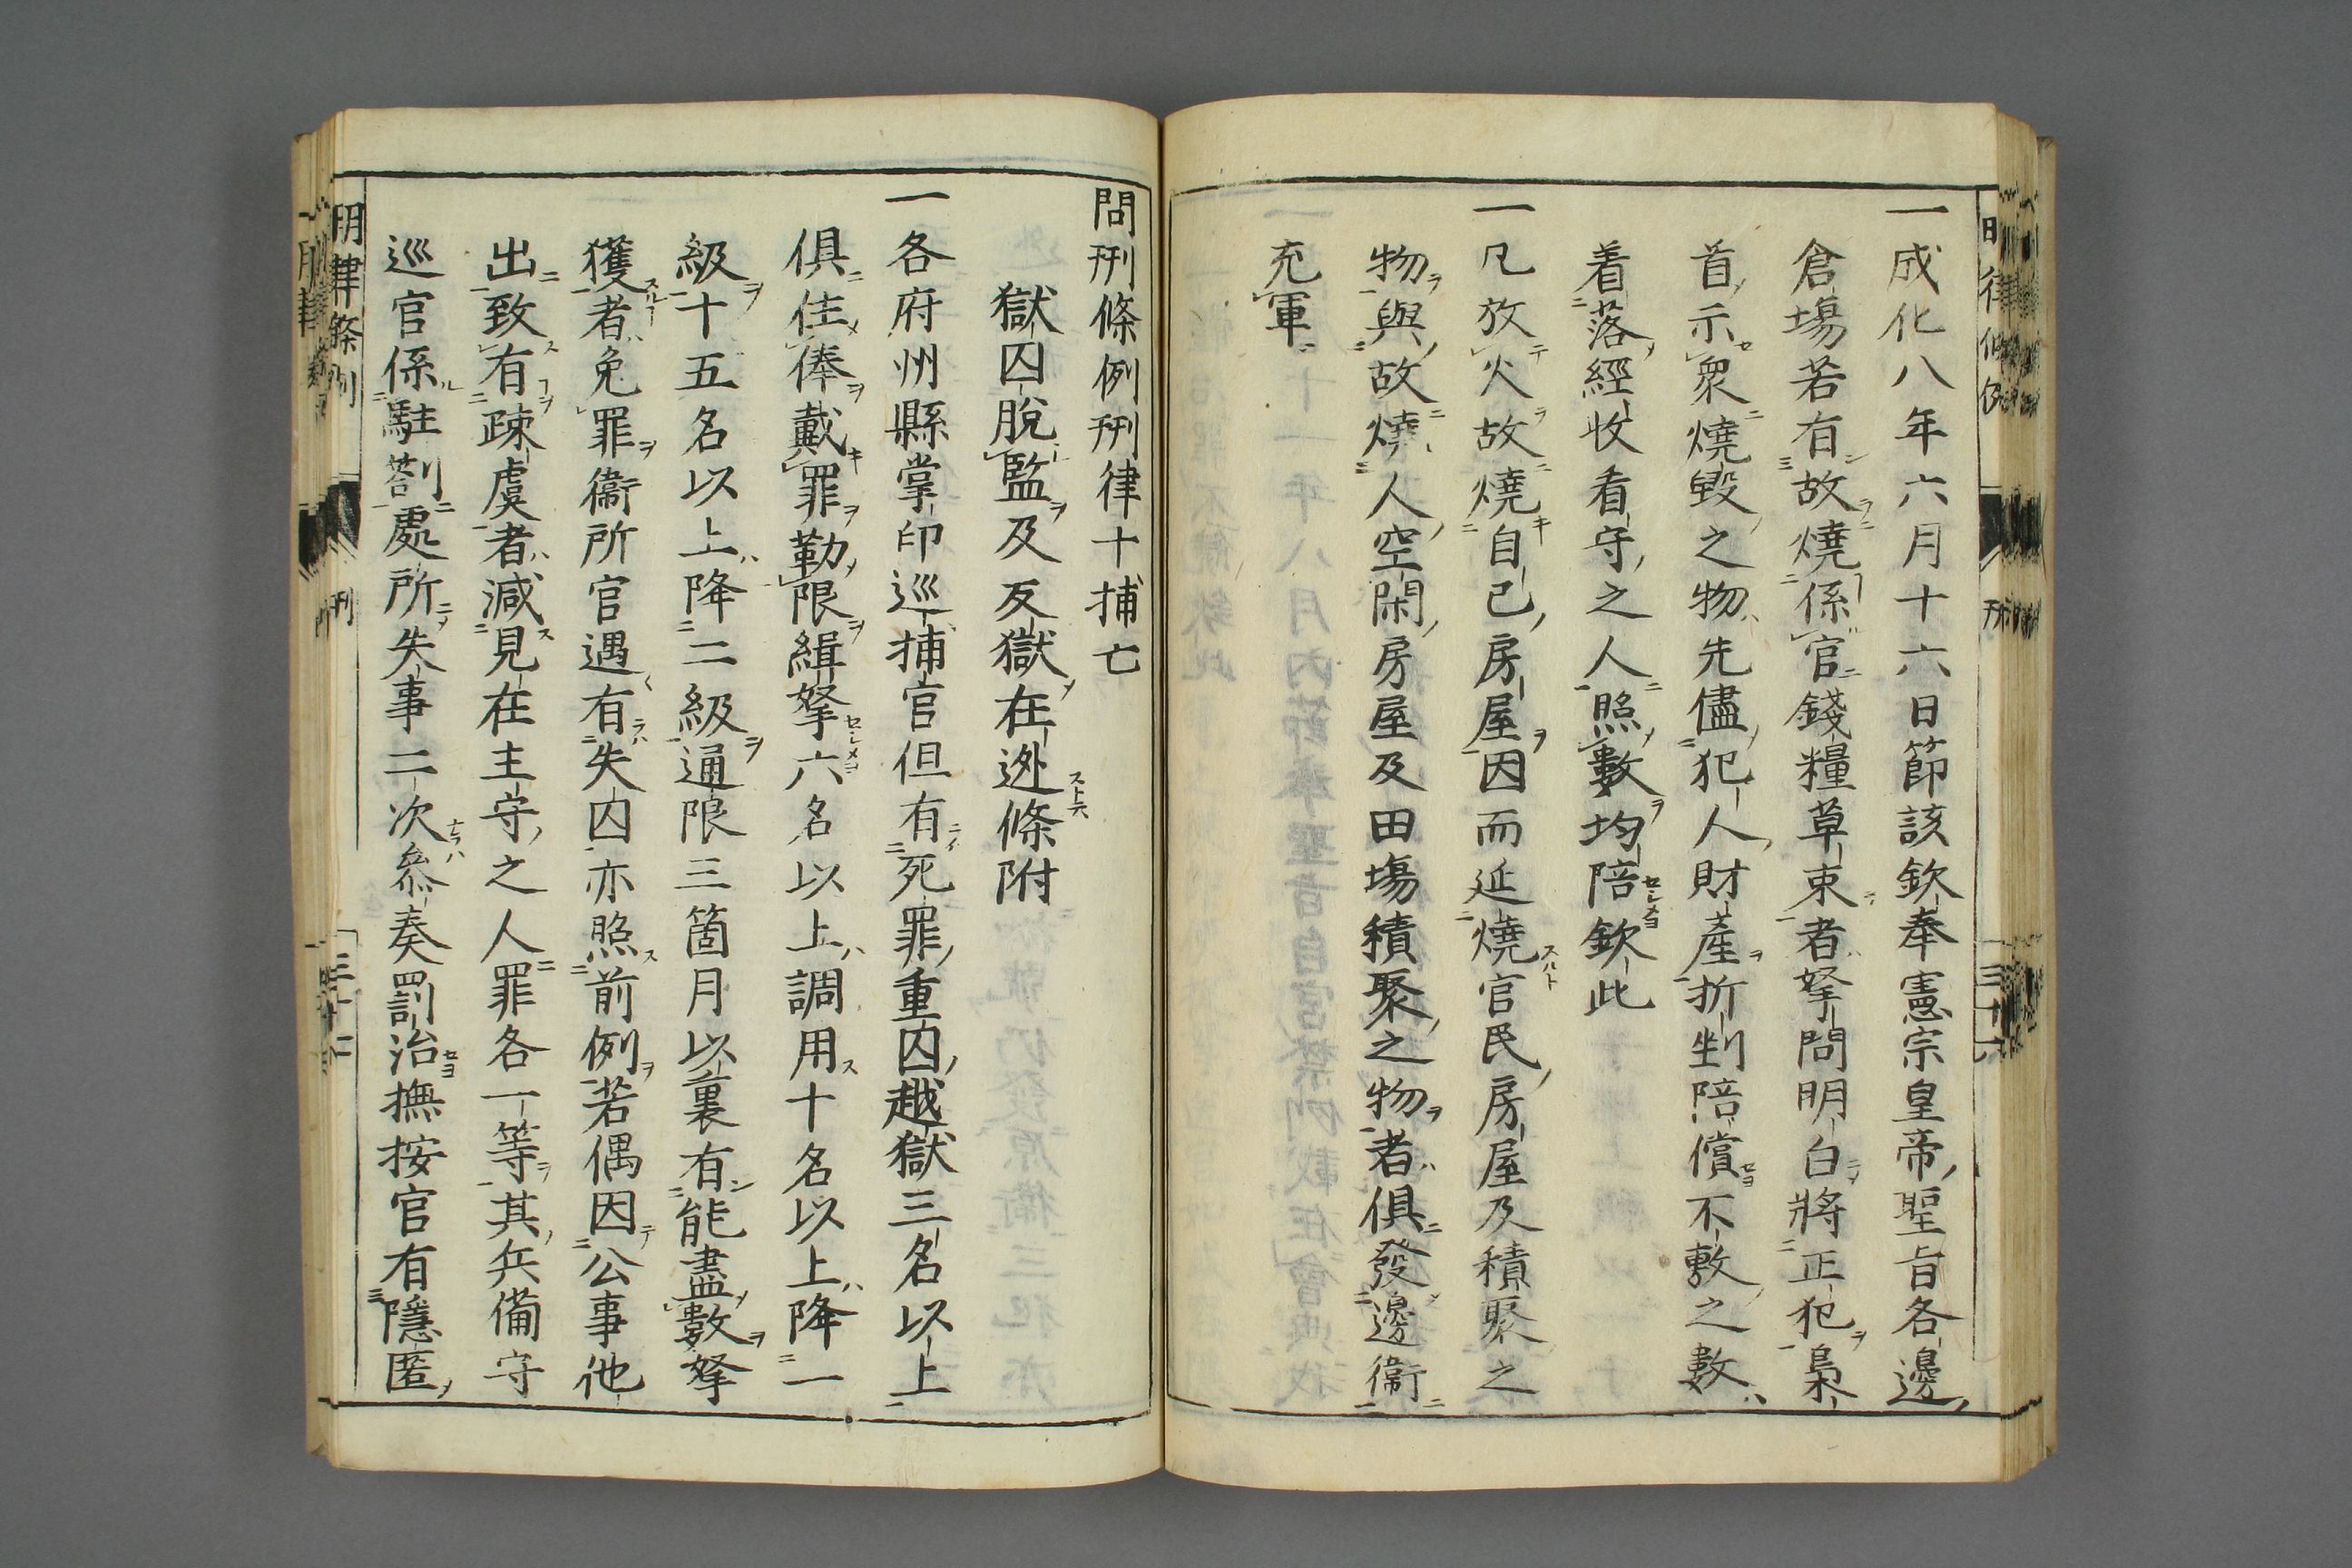 一成化八年六月十六日節該欽奉憲宗皇帝聖旨各邊
倉塲若有故燒係官錢糧草束者拏問明白將正犯梟
首示衆燒毀之物先儘犯人財產折剉陪償不敷之數
着落經收看守之人照數均陪欽此
一凡放火故燒自己房屋因而延燒官民房屋及積聚之
物與故燒人空閑房屋及田塲積聚之物者俱發邊衞
充軍
問刑條例刑律十捕亡
獄囚脫監及反獄在逃條附
一各府州縣掌印巡捕官但有死罪重囚越獄三名以上
俱住俸戴罪勒限緝拏六名以上調用十名以上降一
級十五名以上降二級通限三箇月以裏有能盡數拏
獲者免罪衞所官遇有失囚亦照前例若偶因公事他
出致有疎虞者減見在主守之人罪各一等其兵備守
巡官係駐劄處所失事二次叅奏罰治撫按官有隱匿
明律條例
刑